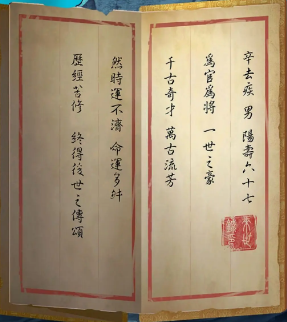 辛去疾 男 陽壽六十七
爲官爲將 一世之豪
千古奇才 萬古流芳
然時運不濟 命運多舛
歷經苦修 終得後世之傳頌